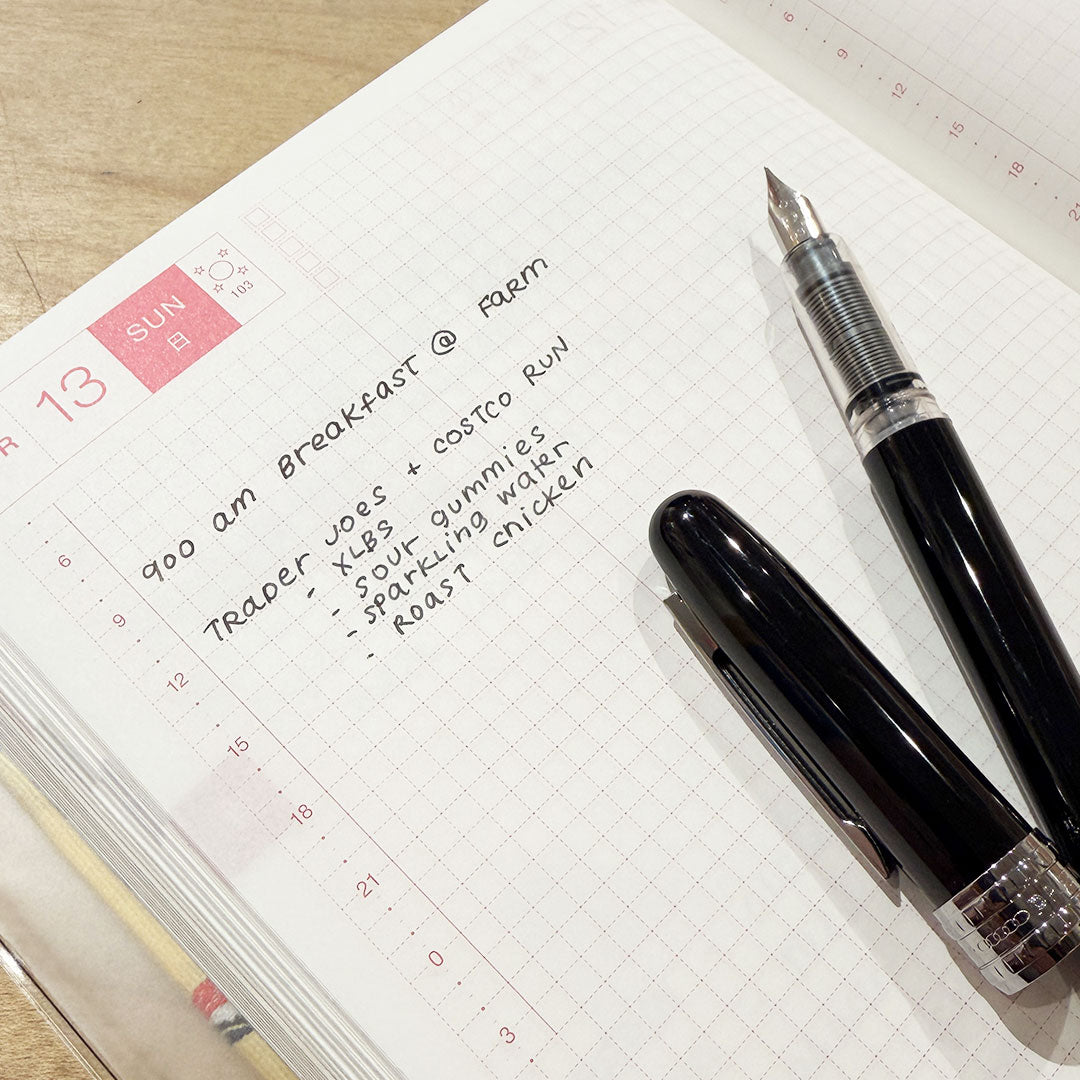 R 13 SUN
日
103
900 am Breakfast @ Farm
TRADER JOES + COSTCO RUN
- XLBS
- SOUR gummies
- sparkling water
- ROAST chicken
6
9
12
15
18
21
0
3
6
9
12
15
18
21